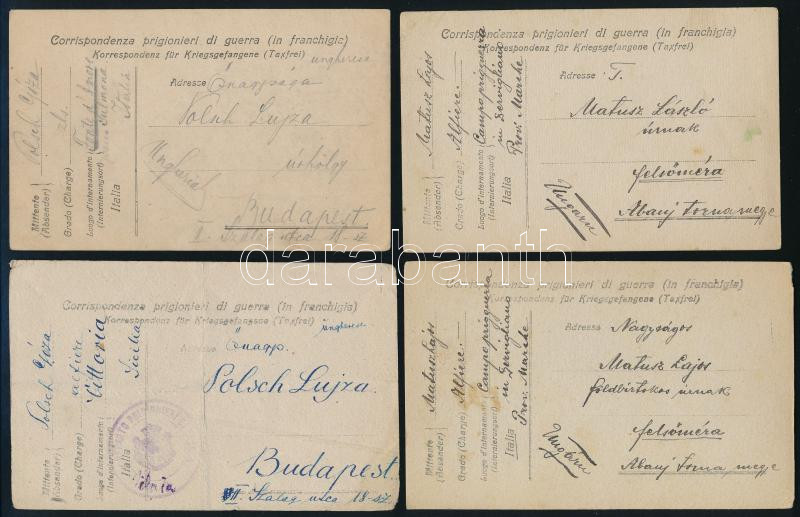 Corrispondenza prigionieri di guerra (in franchigia)
Korrespondenz für Kriegsgefangene (Taxfrei)
ungheresa
Mittente (Absender)
Polsch Géza
Grado (Charge)
Luogo d'Internamento (Internierungsort)
Sulmona
Italia
Italia
Adresse Önagysága
Polsch Lujza
úrhölgy
Ungheria
Budapest
II. Szalag utca 18. sz.
Corrispondenza prigionieri di guerra (in franchigia)
Korrespondenz für Kriegsgefangene (Taxfrei)
Mittente (Absender)
Matusz Lajos
Grado (Charge)
Alfiere
Luogo d'Internamento (Internierungsort)
Campo prigguerra
in Servigliano
Prov. Marche
Italia
Adresse T.
Matusz László
úrnak
felsőméra
Abauj Torna megye
Ungarn
darabanth
Corrispondenza prigionieri di guerra (in franchigia)
Korrespondenz für Kriegsgefangene (Taxfrei)
ungheresa
Mittente (Absender)
Polsch Géza
Grado (Charge)
alfiere
Luogo d'Internamento (Internierungsort)
Vittoria
Sicilia
Italia
Adresse
Önagys.
Polsch Lujza
Budapest
II. Szalag utca 18. sz.
Corrispondenza prigionieri di guerra (in franchigia)
Korrespondenz für Kriegsgefangene (Taxfrei)
Mittente (Absender)
Matusz Lajos
Grado (Charge)
Alfiere
Luogo d'Internamento (Internierungsort)
Campo prigguerra
in Servigliano
Prov. Marche
Italia
Adresse Nagyságos
Matusz Lajos
földbirtokos úrnak
felsőméra
Abauj Torna megye
Ungarn